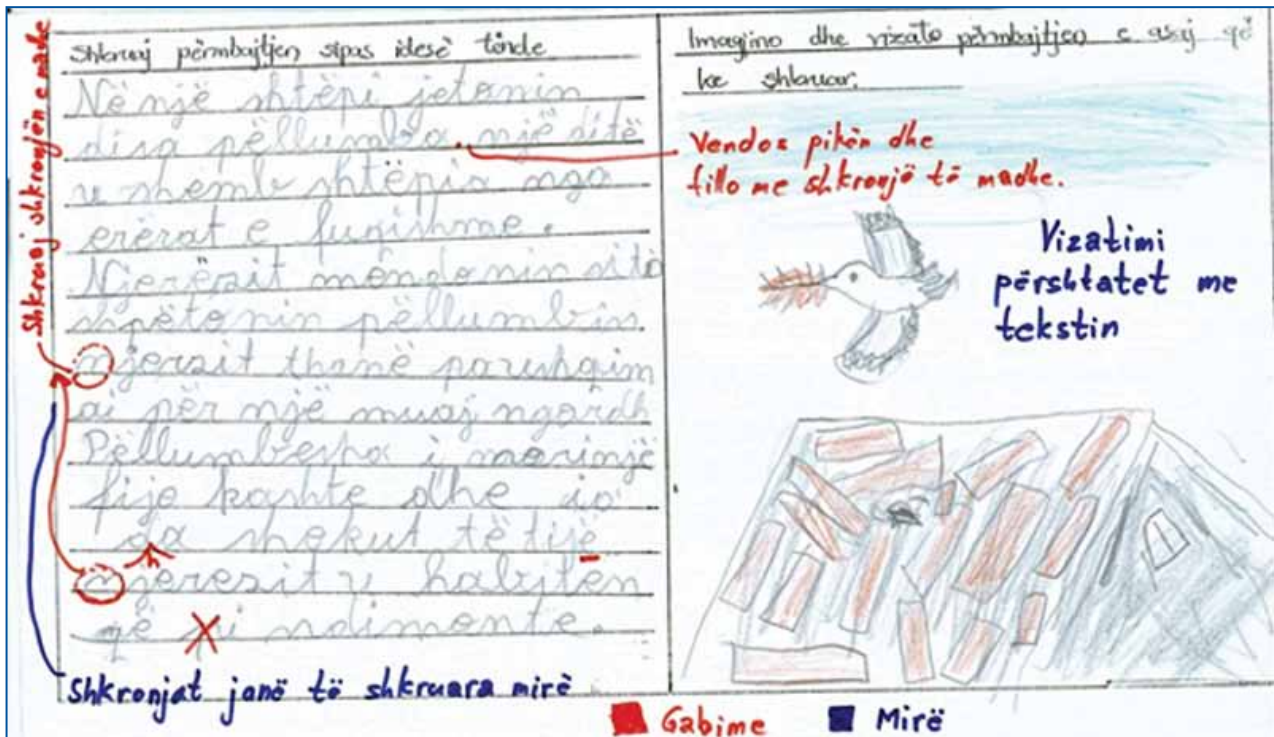 Shkruaj shkronjën e madhe
Shkruaj përmbajtjen sipas idesë tënde
Në një shtëpi jetonin
disa pëllumba. një ditë
u shemb shtëpia nga
erërat e fuqishme.
Njerëzit mendonin si të
shpëtonin pëllumbin.
njerzit thanë parushqim
ai për një muaj ngordh
Pëllumbespa i morinjë
fije kashte dhe ja
ga shokut të tijë
h
njerezit u habiten
që ndimonte.
Shkronjat janë të shkruara mirë
Imagjino dhe vizato përmbajtjen e asaj që
ke shkruar.
Vendos pikën dhe
fillo me shkronjë të madhe.
Vizatimi
përshtatet me
tekstin
Gabime Mirë